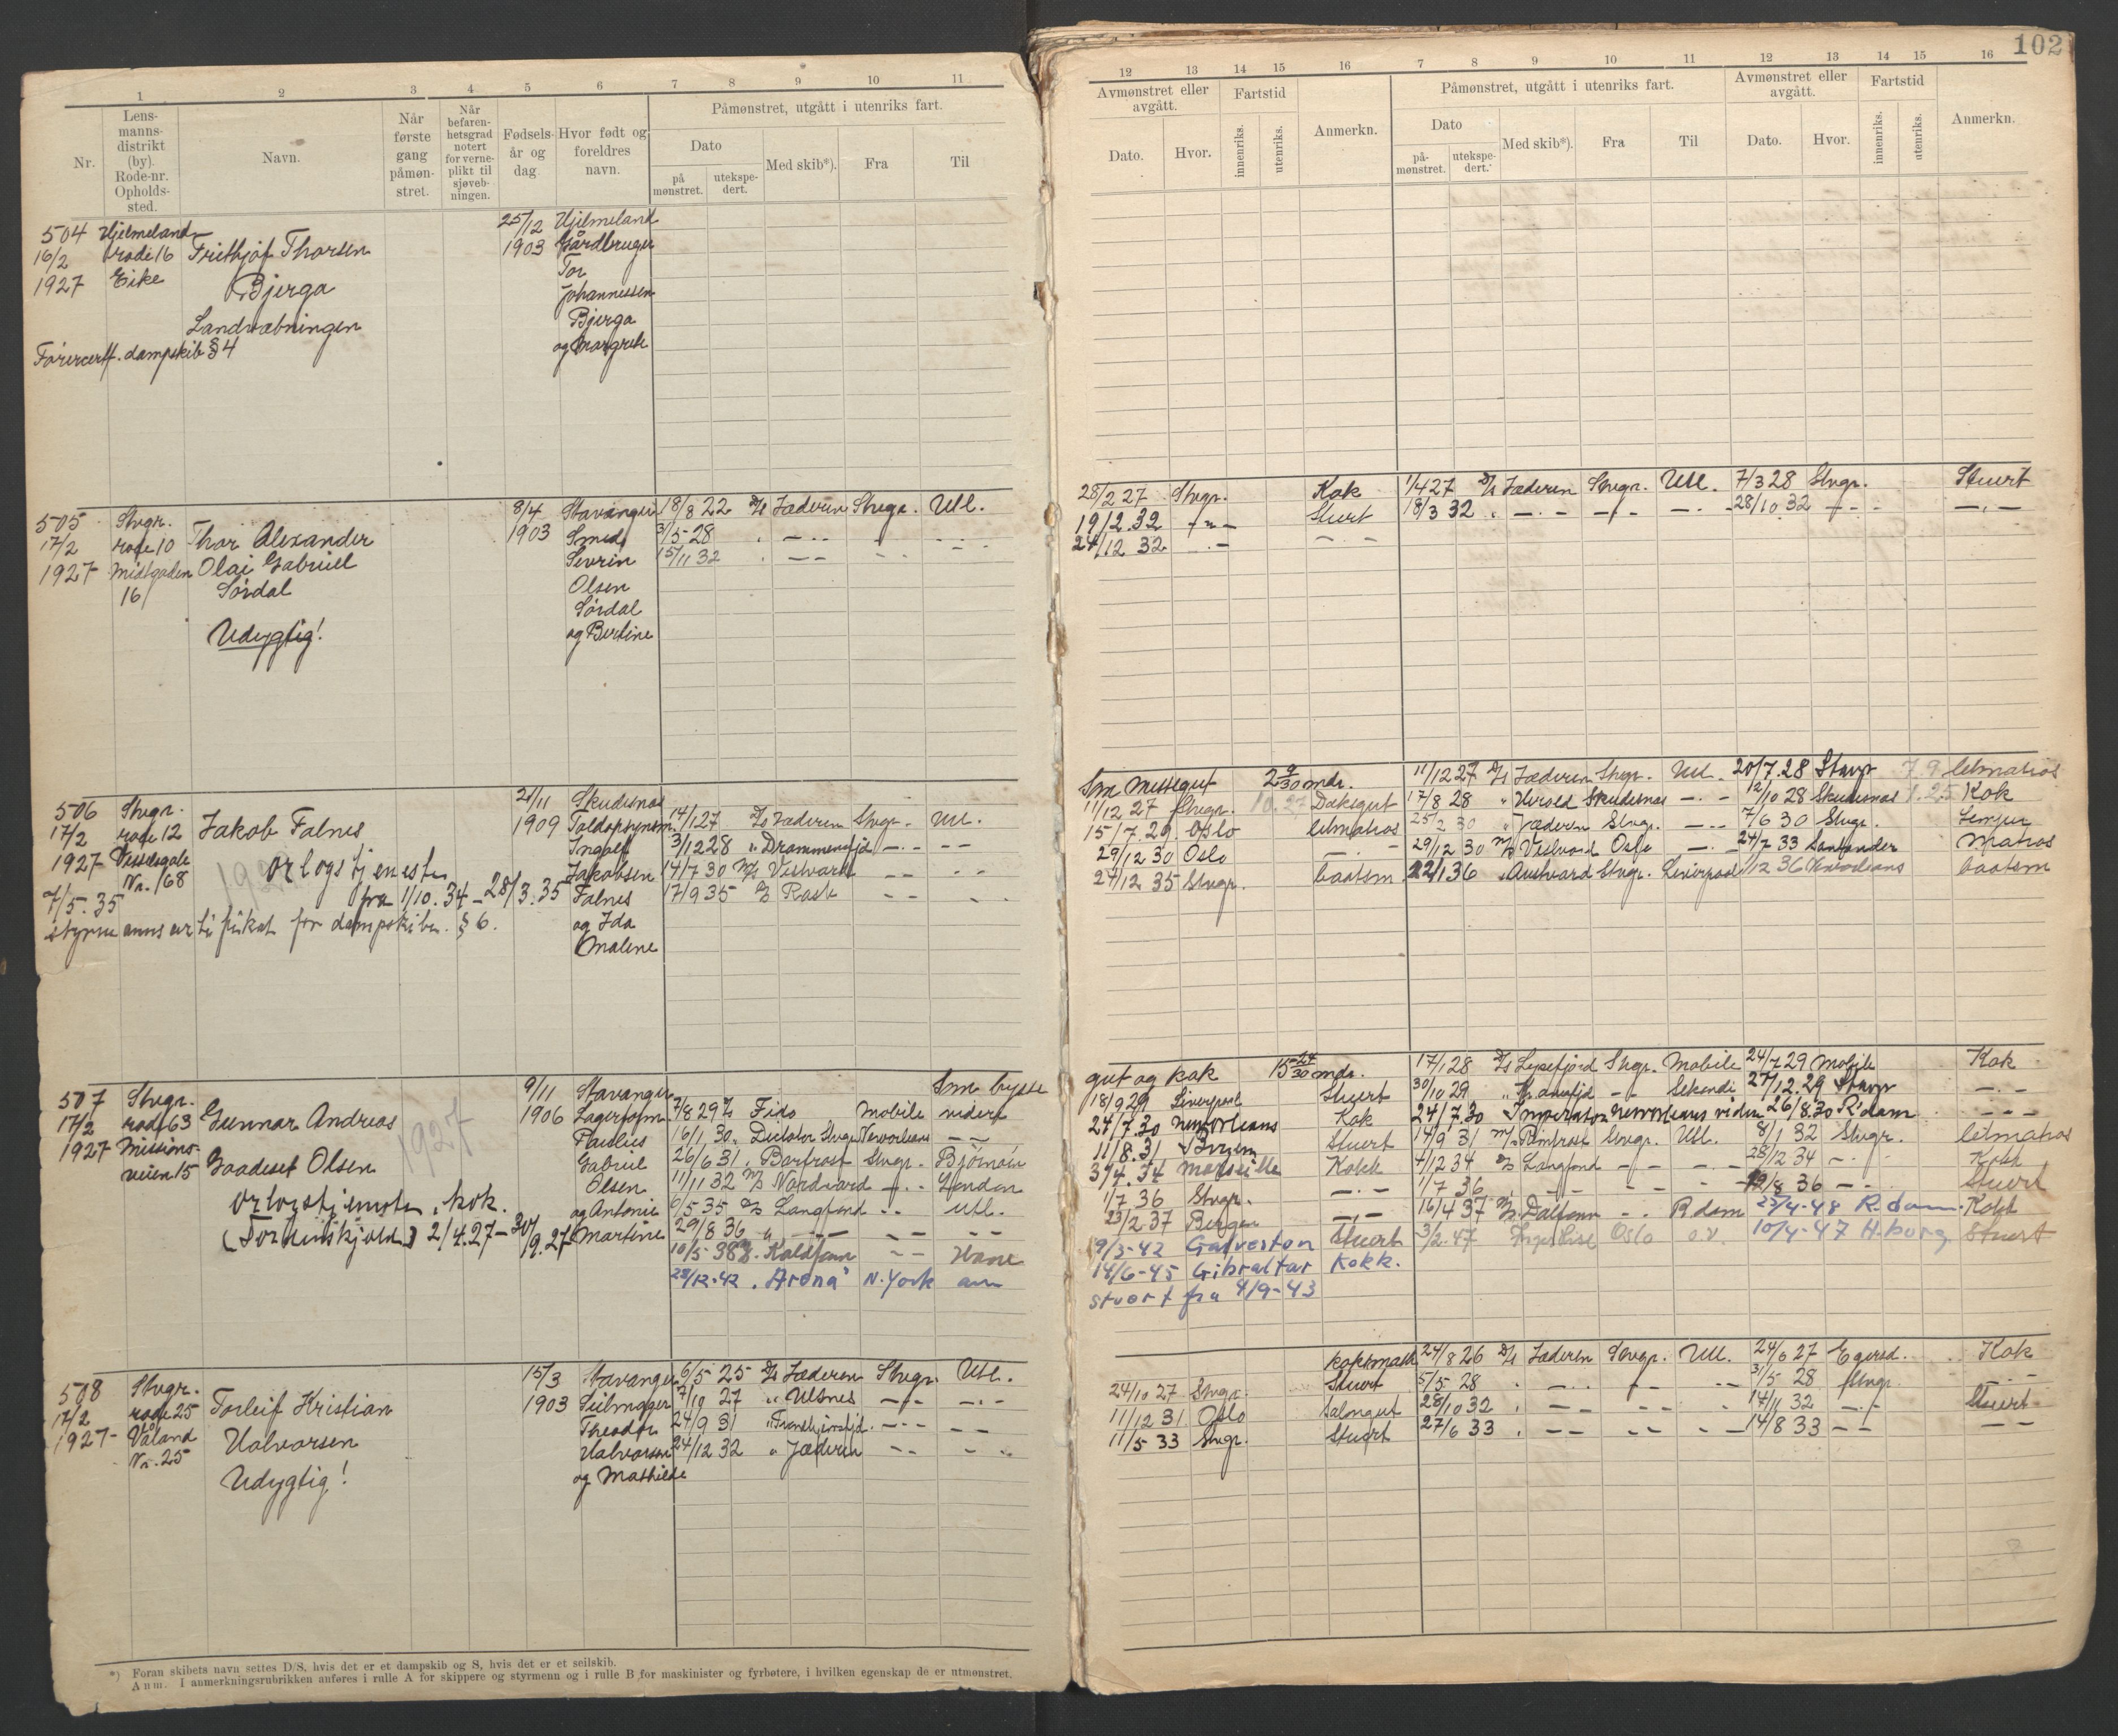 102
1 2 3 4 5 6 7 8 9 10 11
Nr.
Lens-
manns-
distrikt
(by).
Rode-nr.
Opholds-
sted.
Navn.
Når
første
gang
påmøn-
stret.
Når
befaren-
hetsgrad
notert
for verne-
plikt til
sjøveb-
ningen.
Fødsels-
år og
dag
Hvor født og
foreldres
navn.
Påmønstret, utgått i utenriks fart.
Dato
på
mønstret.
utekspe-
dert.
Med skib*).
Fra
Til
504 Hjelmeland 25/12 Hjelmeland
16/2 rode 16 Frithjof Thorsen 1903 Gårdbruger
1927 Eike Bjerga Tor
Johannessen
Landvæbningen Bjerga
Førercert. dampskib § 4 og Margrete
505 Stvgr. 8/4 Stavanger 18/8 22 D/S Jæderen Stvgr. Utl.
17/2 rode 10 Thor Alexander 1903 Smed 3/5-28 " — " —
1927 Midtgaden Olai Gabriel Sevrin 15/11 32 " — —
16 Sørdal Olsen
Sørdal
Udygtig! og Bertine
506 Stvgr. 21/11 Skudesnes
17/2 rode 12 Jakob Falnes 1909 Toldopsynsm. 14/1 27 D/S Jæderen Stvgr. Utl.
1927 Vesselsgate Ingolf 3/12 28 " Drammensfjd — " — — —
Nr. 68 orlogstjeneste Jakobsen 14/7 30 M/S Vestvard — — — —
7/5. 35 fra 1/10. 34 – 28/3. 35 Falnes 17/9 35 D/S Rask — —
styrmannscertifikat for dampskibe. § 6. og Ida
Malene
1927
507 Stvgr. 9/11 Stavanger Sm. bysse
17/2 rode 63 Gunnar Andreas 1906 Lagerform. 7/8 29 D/S Fido Mobile videre
1927 Missions- Paulius 16/1. 30 " Dictator Stvgr. Neworleans — —
veien 15 Gaadeset Olsen Gabriel 26/6 31 " Barfrost Stvgr. Bjørnøu
Olsen 11/11 32 M/S Nordvard — " — London
orlogstjeneste, kok. og Antonie 6/5 35 D/S Langfond — — Utl.
(Tordenskjold) 2/4. 27 – 30/9. 27 Martine 29/8 36 " — — — — — —
10/5-38 D/S Kaldfonn — — Havre
28/12-42 " "Arena" N. York am
1927
508 Stvgr. 15/3 Stavanger 6/5 25 D/S Jæderen Stvgr. Utl.
17/2 rode 25 Torleif Kristian 1903 Seilmager 7/10 27 " Ulsnes — " — — " —
1927 Våland Halvorsen Theodor 24/9 31 " Trondhjemsfjd. — " — — —
Nr. 25 Halvorsen 24/12 32 " Jæderen — — — —
Udygtig! og Mathilde
*) Foran skibets navn settes D/S, hvis det er et dampskib og S, hvis det er et seilskib.
Anm. I anmerkningsrubrikken anføres i rulle A for skippere og styrmenn og i rulle B for maskinister og fyrbøtere, i hvilken egenskap de er utmønstret.
12 13 14 15 16 7 8 9 10 11 12 13 14 15 16
Avmønstret eller
avgått.
Dato.
Hvor.
Fartstid
innenriks.
utenriks.
Anmerkn.
Påmønstret, utgått i utenriks fart.
Dato
på-
mønstret.
utekspe-
dert.
Med skib*).
Fra
Til
Avmønstret eller
avgått.
Dato.
Hvor.
Fartstid
innenriks.
utenriks.
Anmerkn.
28/2 27 Stvgr. Kok 1/4 27 D/S Jæderen Stvgr. Utl. 7/3 28 Stvgr. Stuert
19/2 32 — " — Stuert 18/3 32 " — " — — " — — " — 28/10 32 — " — — " —
24/12 32 — " — — " —
Sm Messegut 2 9/30 mdr. 11/12 27 D/S Jæderen Stvgr. Utl. 20/7. 28 Stvgr 7. 9 letmatros
11/12 27 Stvgr. 10. 27 Daksgut 17/8 28 " Herold Skudesnes — " — 12/10 28 Skudesnes 1. 25 Kok
15/7. 29 Oslo letmatros 25/2 30 " Jæderen Stvgr. — " — 7/6 30 Stvgr.
29/12 30 Oslo — " — 29/12 30 M/S Vestvard Oslo — " — 24/7 33 Santander Matros
27/12 35 Stvgr. baatsm. 22/1 36 " Austvard Stvgr. Liverpool /12 36 Neworleans baatsm
gut og kok 15 24/30 mdr. 17/1 28 D/S Lysefjord Stvgr. Mobile 24/7 29 Mobile Kok
18/9 29 Liverpool Stuert 30/10 29 — — Sekondi 27/12. 29 Stvgr — " —
24/7. 30 Neworleans Kok 24/7. 30 Imperator Neworleans viden 26/8. 30 R'dam — " —
11/8. 31 Bergen Stuert 14/9 31 M/S Stvgr. Utl. 8/1 32 Stvgr. letmatros
3/4. 34 Marseille Kokk 4/12 34 D/S Langfond — — — " — 28/2 34 — " — Kokk
1/7 36 Stvgr. — " — 1/7 36 " — — — — 19/8 36 — " — Stuert
23/2 37 Bergen — " — 16/4 37 D/S Dalfonn — — R.dam 23/4-48 R.dam. Kokk
9/3-42 Galveston Stuert 3/2. 47 Oslo o.v. 10/4-47 H.borg Stuert
14/6-45 Gibraltar Kokk.
stuert fra 4/9-43
koksmath 24/8 26 D/S Jæderen Stvgr. Utl. 24/6 27 Egersd. Kok
24/10 27 Stvgr. Stuert 5/5 28 " — " — — " — — " — 31/5 28 Stvgr — " —
11/12 31 Oslo salongut 28/10 32 " — — — — " 14/11 32 — " — Stuert
11/5 33 Stvgr. Stuert 27/6 33 " — — — — — — 14/8 33 — — — —